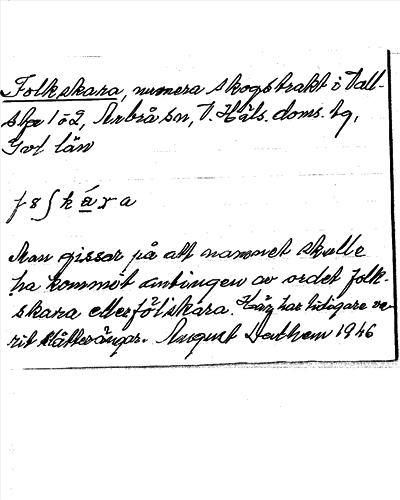 Folkskara, numera skogstrakt i Vall-
sta 1 o 2, Arbrå sn, V. Häls. doms. tg,
Gvl län
f 8 ʃ k á r a
Man gissar på att namnet skulle
ha kommit antingen av ordet folk-
skara eller fölskara. Här har tidigare va-
rit slåtterängar. August Dathem 1946